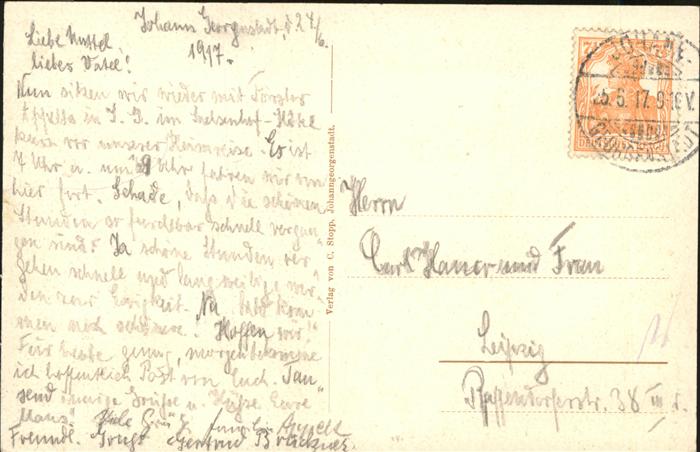 Johann Georgenstadt, d. 24/6.
1917.
Liebe Muttel,
liebes Vatel!
Nun sitzen wir wieder mit Förster
Appelts in J. G. im
kurz vor unserer Heimreise. Es ist
7 Uhr u. um 9 Uhr fahren wir von
hier fort. Schade, daß die schönen
Stunden so furchtbar schnell vergan-
gen sind! Ja schöne Stunden ver-
gehen schnell und langweilige wer-
den zur Ewigkeit. Na, bald kom-
men noch schönere! Hoffen wir!
Für heute genug, morgen bekomme
ich hoffentlich Post von Euch. Tau-
send innige Grüße u. Küsse Eure
Maus! Viele Grüße
Freundl. Gruß Gertrud Brückner
Verlag von C. Stopp, Johanngeorgenstadt.
25.6.17. 9-10V.
Herrn
Carl Hauer und Frau
Leipzig
Pfaffendorferstr. 38 III r.